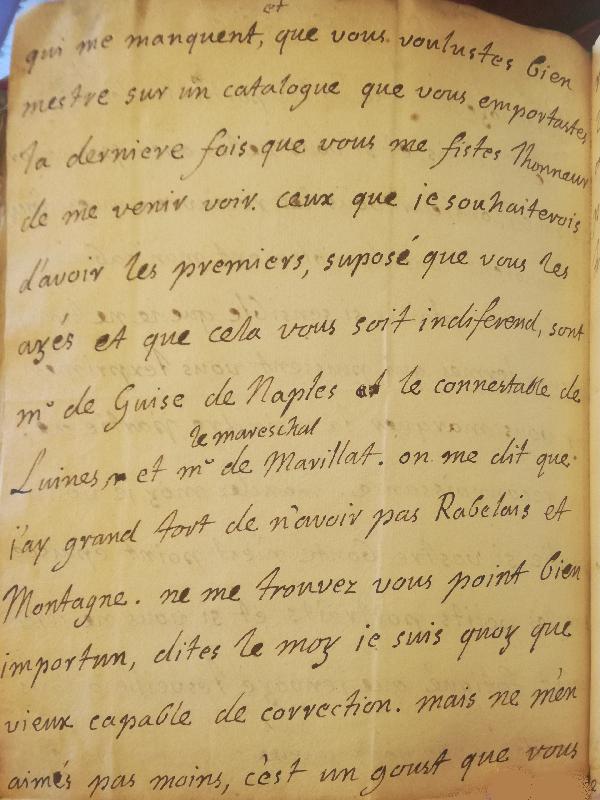 et
qui me manquent, que vous voulustes bien
mestre sur un catalogue que vous emportastes
la derniere fois que vous me fistes lhonneur
de me venir voir. ceux que je souhaiterois
d'avoir les premiers, suposé que vous les
ayés et que cela vous soit indiferend, sont
mr de Guise de Naples et le connestable de
le mareschal
Luines, et mr de Marillat. on me dit que
j'ay grand tort de n'avoir pas Rabelais et
Montagne. ne me trouvez vous point bien
importun, dites le moy je suis quoy que
vieux capable de correction. mais ne m'en
aimés pas moins, c'est un goust que vous